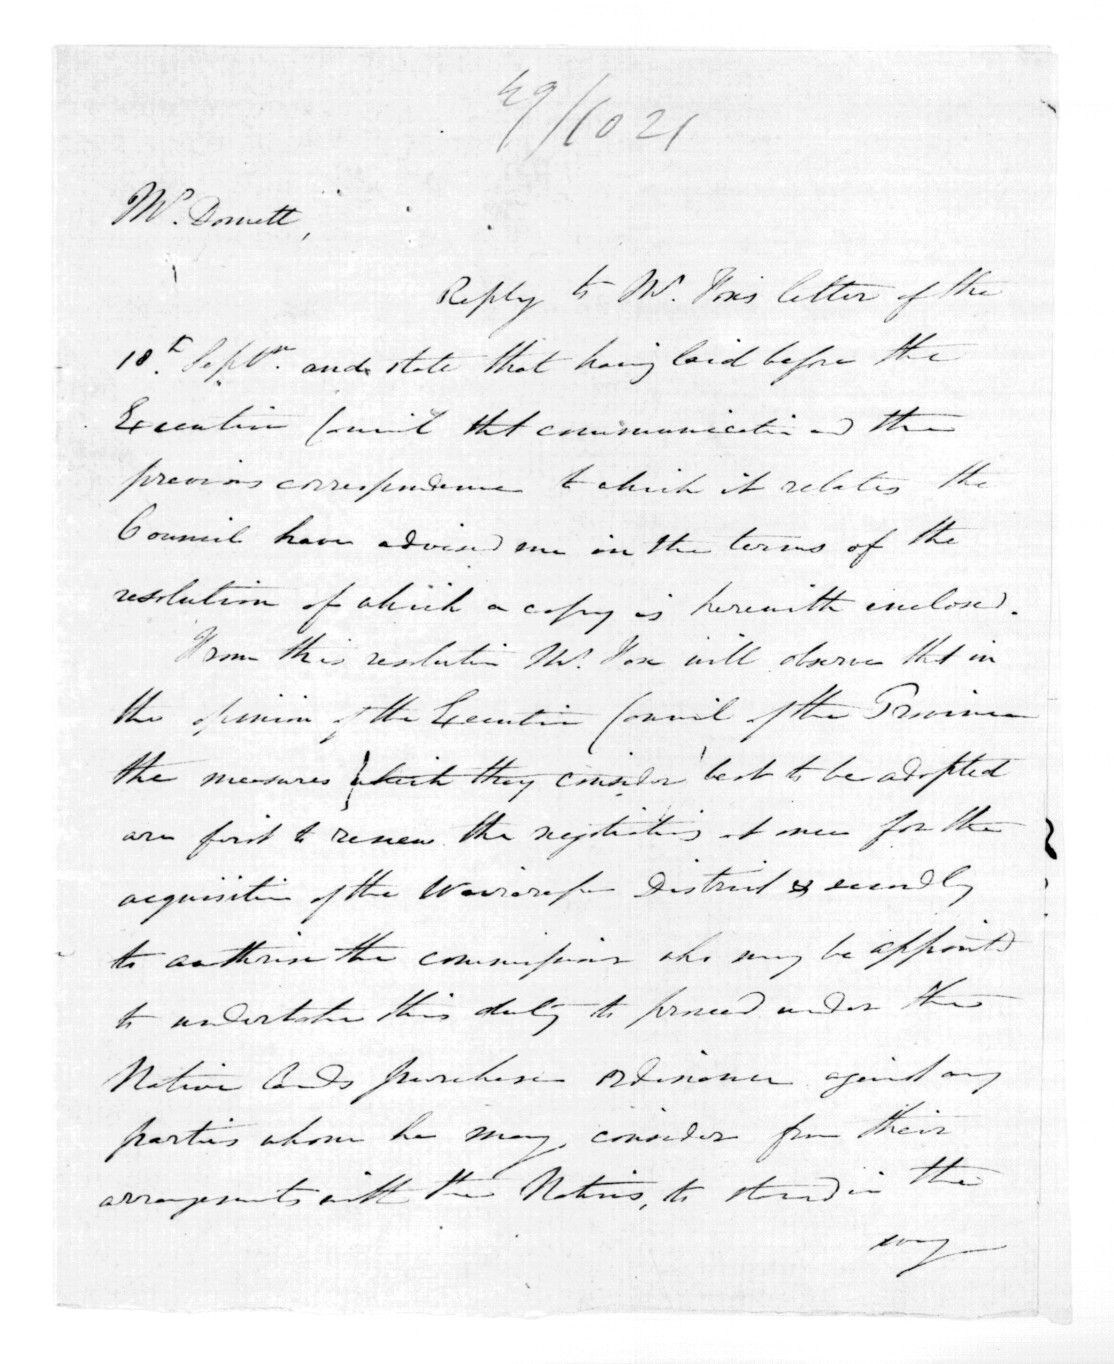 49/1021
Mr. Domett,
Reply to Mr. Fox's letter of the
18th. Septbr. and state that having laid before the
Executive Council that communication and the
previous correspondence to which it relates the
Council have advised me in the terms of the
resolution of which a copy is herewith enclosed.
From this resolution Mr. Fox will observe that in
the opinion of the Executive Council of the Province
the measures which they consider best to be adopted
are first to renew the negotiations at once for the
acquisition of the Wairarapa District & secondly
to authorise the commissioner who may be appointed
to undertake this duty to proceed under the
Native Lands purchase ordinance against any
parties whom he may, consider from their
arrangements with the Natives, to stand in the
way